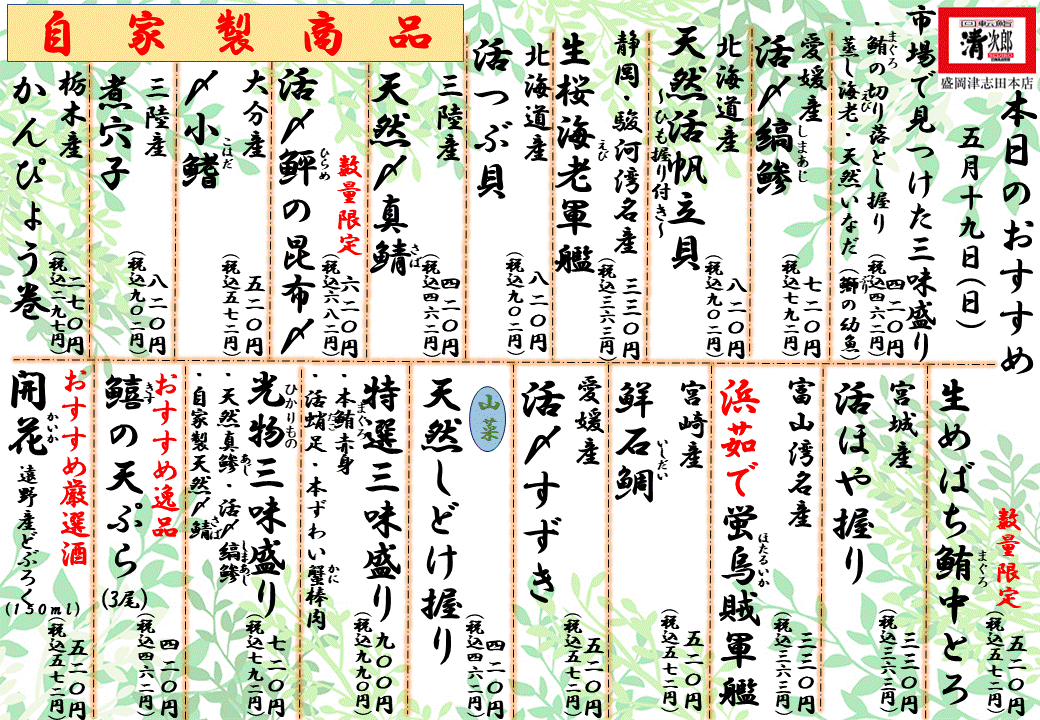 回転鮨
清次郎
盛岡津志田本店
本日のおすすめ
五月十九日(日)
市場で見つけた三味盛り
・鮪の切り落とし握り
まぐろ
・蒸し海老・天然いなだ(鰤の幼魚)
えび
ぶり
四二〇円
(税込四六二円)
愛媛産
活〆縞鰺
しまあじ
七二〇円
(税込七九二円)
北海道産
天然活帆立貝
~ひも握り付き~
八二〇円
(税込九〇二円)
静岡・駿河湾名産
生桜海老軍艦
えび
三三〇円
(税込三六三円)
北海道産
活つぶ貝
八二〇円
(税込九〇二円)
自家製商品
三陸産
天然〆真鯖
さば
四二〇円
(税込四六二円)
数量限定
活〆鮃の昆布〆
ひらめ
六二〇円
(税込六八二円)
大分産
〆小鰭
こはだ
五二〇円
(税込五七二円)
三陸産
煮穴子
八二〇円
(税込九〇二円)
栃木産
かんぴょう巻
二七〇円
(税込二九七円)
数量限定
生めばち鮪中とろ
まぐろ
五二〇円
(税込五七二円)
宮城産
活ほや握り
三三〇円
(税込三六三円)
富山湾名産
浜茹で蛍烏賊軍艦
ほたるいか
三三〇円
(税込三六三円)
宮崎産
鮮石鯛
いしだい
五二〇円
(税込五七二円)
愛媛産
活〆すずき
五二〇円
(税込五七二円)
山菜
天然しどけ握り
四二〇円
(税込四六二円)
特選三味盛り
・本鮪赤身
まぐろ
・活蛸足・本ずわい蟹棒肉
たこ
かに
九〇〇円
(税込九九〇円)
光物三味盛り
ひかりもの
・天然真鰺・活〆縞鰺
あじ
しまあじ
・自家製天然〆鯖
さば
七二〇円
(税込七九二円)
おすすめ逸品
鱚の天ぷら(3尾)
きす
四二〇円
(税込四六二円)
おすすめ厳選酒
開花
かいか
遠野産どぶろく
(150ml)
五二〇円
(税込五七二円)